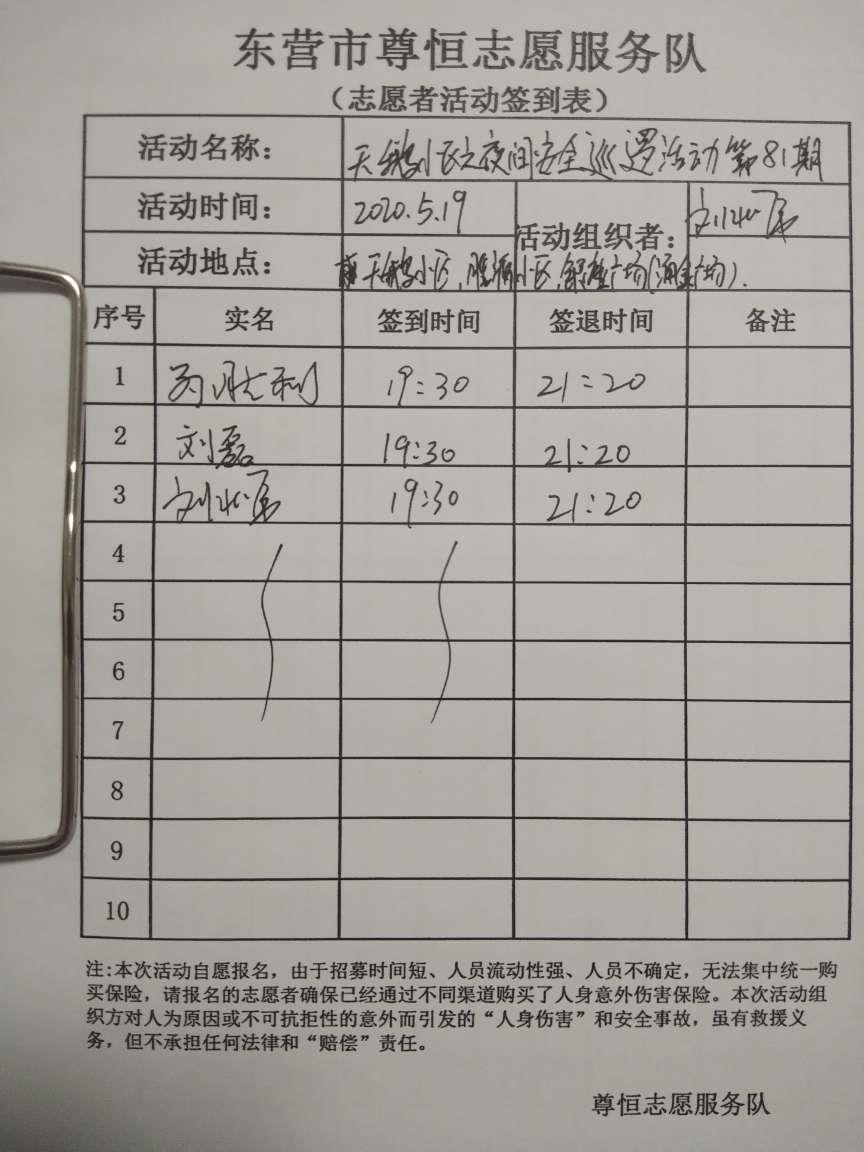 东营市尊恒志愿服务队
（志愿者活动签到表）
活动名称： 天鹅小区之夜间安全巡逻活动第81期
活动时间： 2020.5.19 活动组织者：
活动地点： 天鹅小区, 小区, 广场
序号 实名 签到时间 签退时间 备注
1 胜利 19:30 21:20
2 刘磊 19:30 21:20
3 刘 19:30 21:20
4
5
6
7
8
9
10
注:本次活动自愿报名，由于招募时间短、人员流动性强、人员不确定，无法集中统一购
买保险，请报名的志愿者确保已经通过不同渠道购买了人身意外伤害保险。本次活动组
织方对人为原因或不可抗拒性的意外而引发的“人身伤害”和安全事故，虽有救援义
务，但不承担任何法律和“赔偿”责任。
尊恒志愿服务队